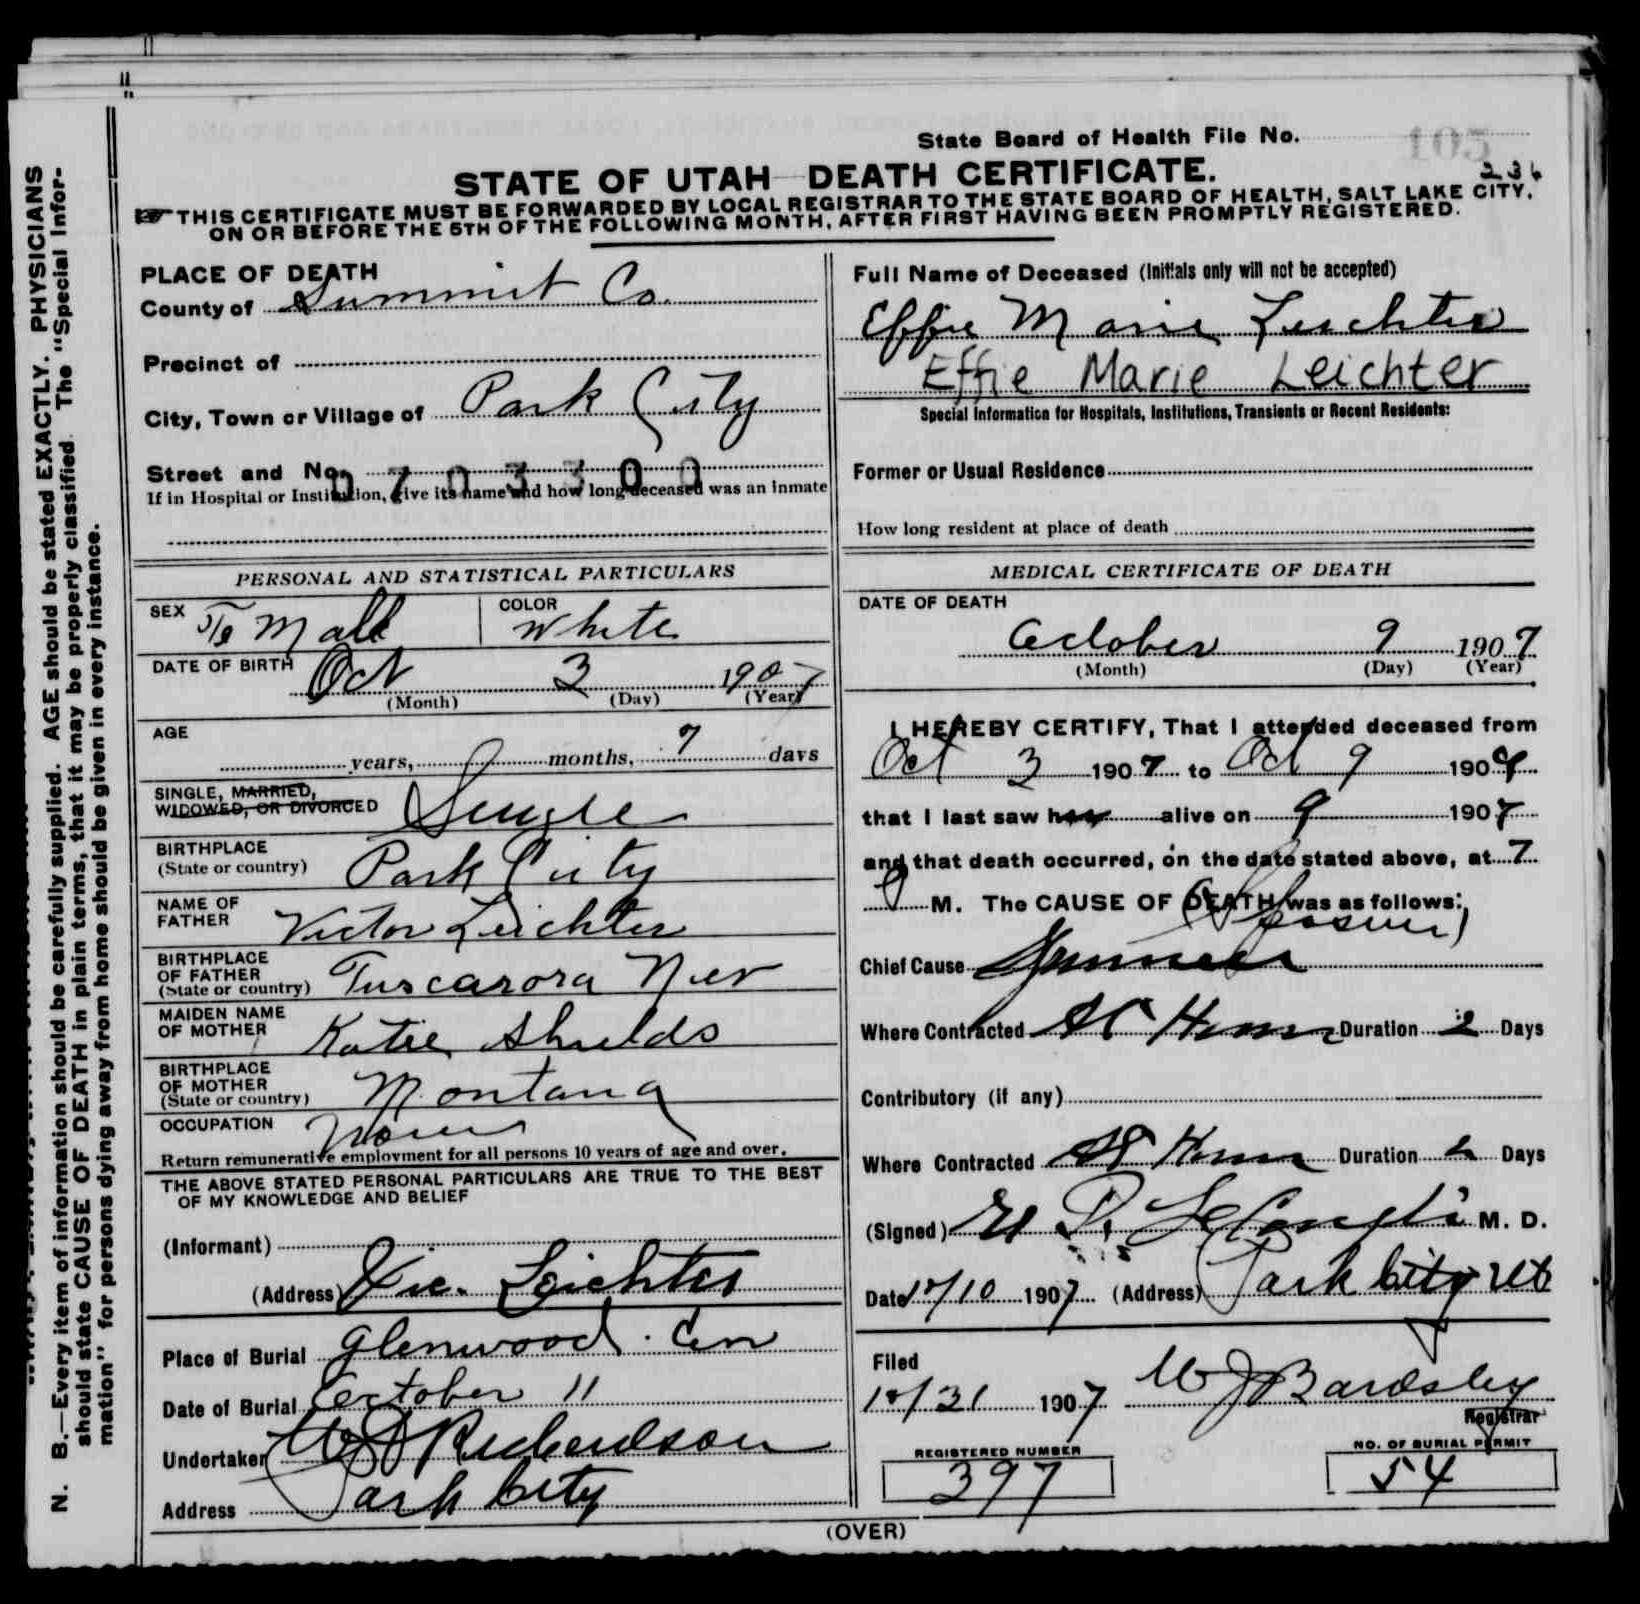 State Board of Health File No. 105
236
STATE OF UTAH—DEATH CERTIFICATE.
THIS CERTIFICATE MUST BE FORWARDED BY LOCAL REGISTRAR TO THE STATE BOARD OF HEALTH, SALT LAKE CITY,
ON OR BEFORE THE 5TH OF THE FOLLOWING MONTH, AFTER FIRST HAVING BEEN PROMPTLY REGISTERED.
PLACE OF DEATH
County of Summit Co.
Precinct of
City, Town or Village of Park City
Street and No.
0703300
If in Hospital or Institution, give its name and how long deceased was an inmate
Full Name of Deceased (Initials only will not be accepted)
Effie Marie Leichter
Effie Marie Leichter
Special Information for Hospitals, Institutions, Transients or Recent Residents:
Former or Usual Residence
How long resident at place of death
PERSONAL AND STATISTICAL PARTICULARS
SEX Fe Male COLOR White
DATE OF BIRTH Oct 3 1907
(Month) (Day) (Year)
AGE
years, months, 7 days
SINGLE, MARRIED,
WIDOWED, OR DIVORCED Single
BIRTHPLACE
(State or country) Park City
NAME OF
FATHER Victor Leichter
BIRTHPLACE
OF FATHER
(State or country) Tuscarora Nev
MAIDEN NAME
OF MOTHER Katie Shields
BIRTHPLACE
OF MOTHER
(State or country) Montana
OCCUPATION None
Return remunerative employment for all persons 10 years of age and over.
THE ABOVE STATED PERSONAL PARTICULARS ARE TRUE TO THE BEST
OF MY KNOWLEDGE AND BELIEF
(Informant)
(Address) Vic. Leichter
Place of Burial Glenwood Cem
Date of Burial October 11
Undertaker Richardson
Address Park City
MEDICAL CERTIFICATE OF DEATH
DATE OF DEATH
October 9 1907
(Month) (Day) (Year)
I HEREBY CERTIFY, That I attended deceased from
Oct 3 1907 to Oct 9 1907
that I last saw her alive on 9 1907
and that death occurred, on the date stated above, at 7
M. The CAUSE OF DEATH was as follows:
Chief Cause
Where Contracted At Home Duration 2 Days
Contributory (if any)
Where Contracted At Home Duration Days
(Signed) M. D.
Date 10/10 1907 (Address) Park City Ut
Filed
10/31 1907 W J Bardsley
Registrar
REGISTERED NUMBER
397
NO. OF BURIAL PERMIT
54
(OVER)
N. B.—Every item of information should be carefully supplied. AGE should be stated EXACTLY. PHYSICIANS
should state CAUSE OF DEATH in plain terms, that it may be properly classified. The "Special Infor-
mation" for persons dying away from home should be given in every instance.